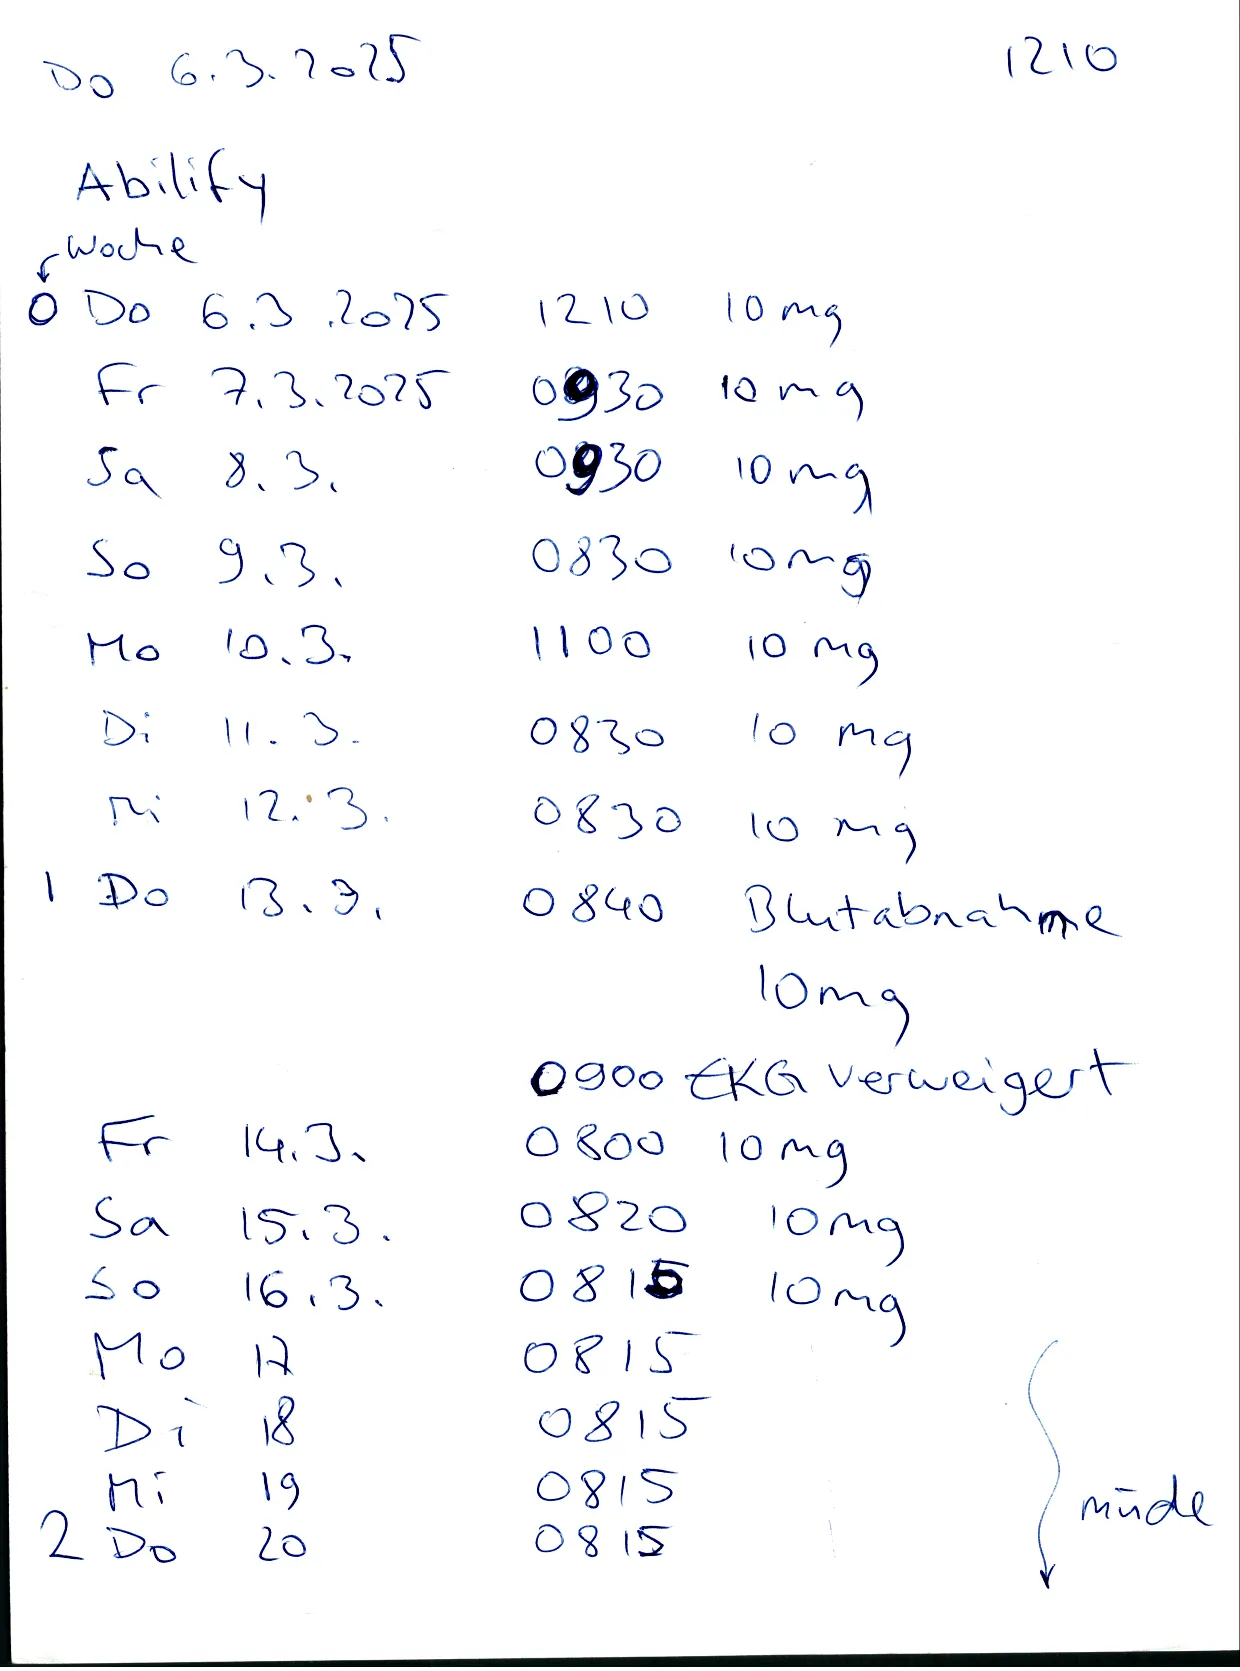 Do 6.3.2025 1210
Abilify
Woche
0 Do 6.3.2025 1210 10 mg
Fr 7.3.2025 0930 10 mg
Sa 8.3. 0930 10 mg
So 9.3. 0830 10 mg
Mo 10.3. 1100 10 mg
Di 11.3. 0830 10 mg
Mi 12.3. 0830 10 mg
1 Do 13.3. 0840 Blutabnahme
10mg
0900 EKG verweigert
Fr 14.3. 0800 10 mg
Sa 15.3. 0820 10mg
So 16.3. 0815 10mg
Mo 17 0815
Di 18 0815
Mi 19 0815 müde
2 Do 20 0815